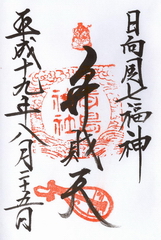 日向国七福神
弁財天
平成十九年八月二十五日